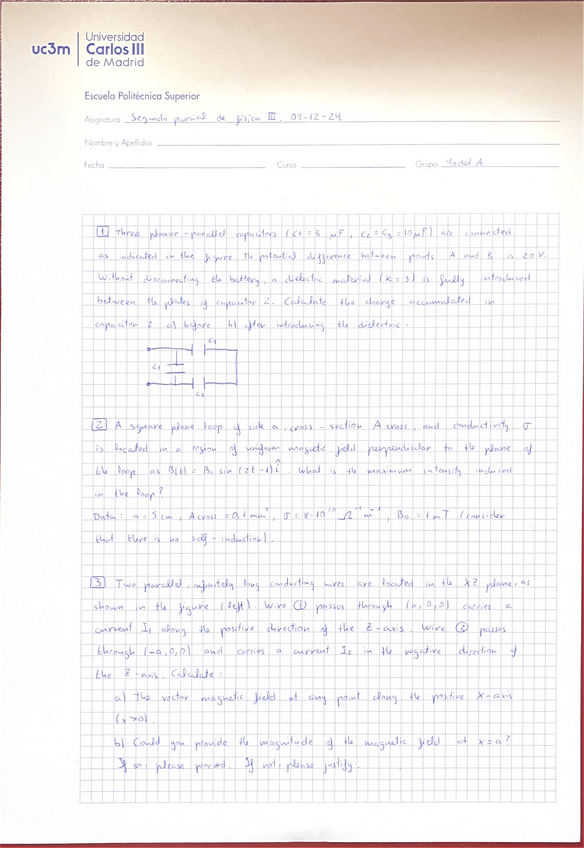 uc3m
Universidad
Carlos III
de Madrid
Escuela Politécnica Superior
Asignatura Segundo parcial de física III. 09-12-24
Nombre y Apellidos
Fecha Curso Grupo Model A
1 Three planar-parallel capacitors (C1 = 5 μF, C2 = C3 = 10 μF) are connected
as indicated in the figure. The potential difference between points A and B is 20 V.
Without disconnecting the battery, a dielectric material (K = 3) is fully introduced
between the plates of capacitor 2. Calculate the charge accumulated in
capacitor 2 a) before b) after introducing the dielectric.
C1
2 A square plane loop of side a, cross-section A cross, and conductivity σ
is located in a region of uniform magnetic field perpendicular to the plane of
the loop as B(t) = B₀ sin (2t - 1) î. What is the maximum intensity induced
in the loop?
Data: a = 5 cm, Across = 0,1 mm², σ = 8·10¹⁰ Ω⁻¹ m⁻¹, B₀ = 1 mT (consider
that there is no self-induction).
3 Two parallel, infinitely long conducting wires are located in the XZ plane, as
shown in the figure (left). Wire ① passes through (a,0,0) carries a
current I₁ along the positive direction of the Z-axis. Wire ② passes
through (-a,0,0) and carries a current I₂ in the negative direction of
the Z-axis. Calculate:
a) The vector magnetic field at any point along the positive X-axis
(x>0).
b) Could you provide the magnitude of the magnetic field at x = a?
If so, please proceed. If not, please justify.